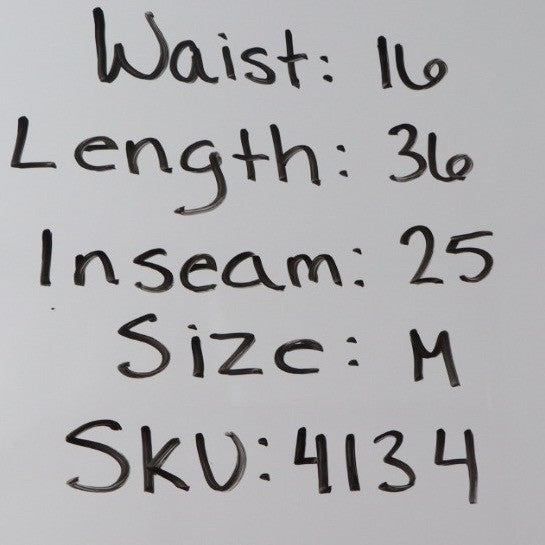 Waist: 16
Length: 36
Inseam: 25
Size: M
SKU: 4134